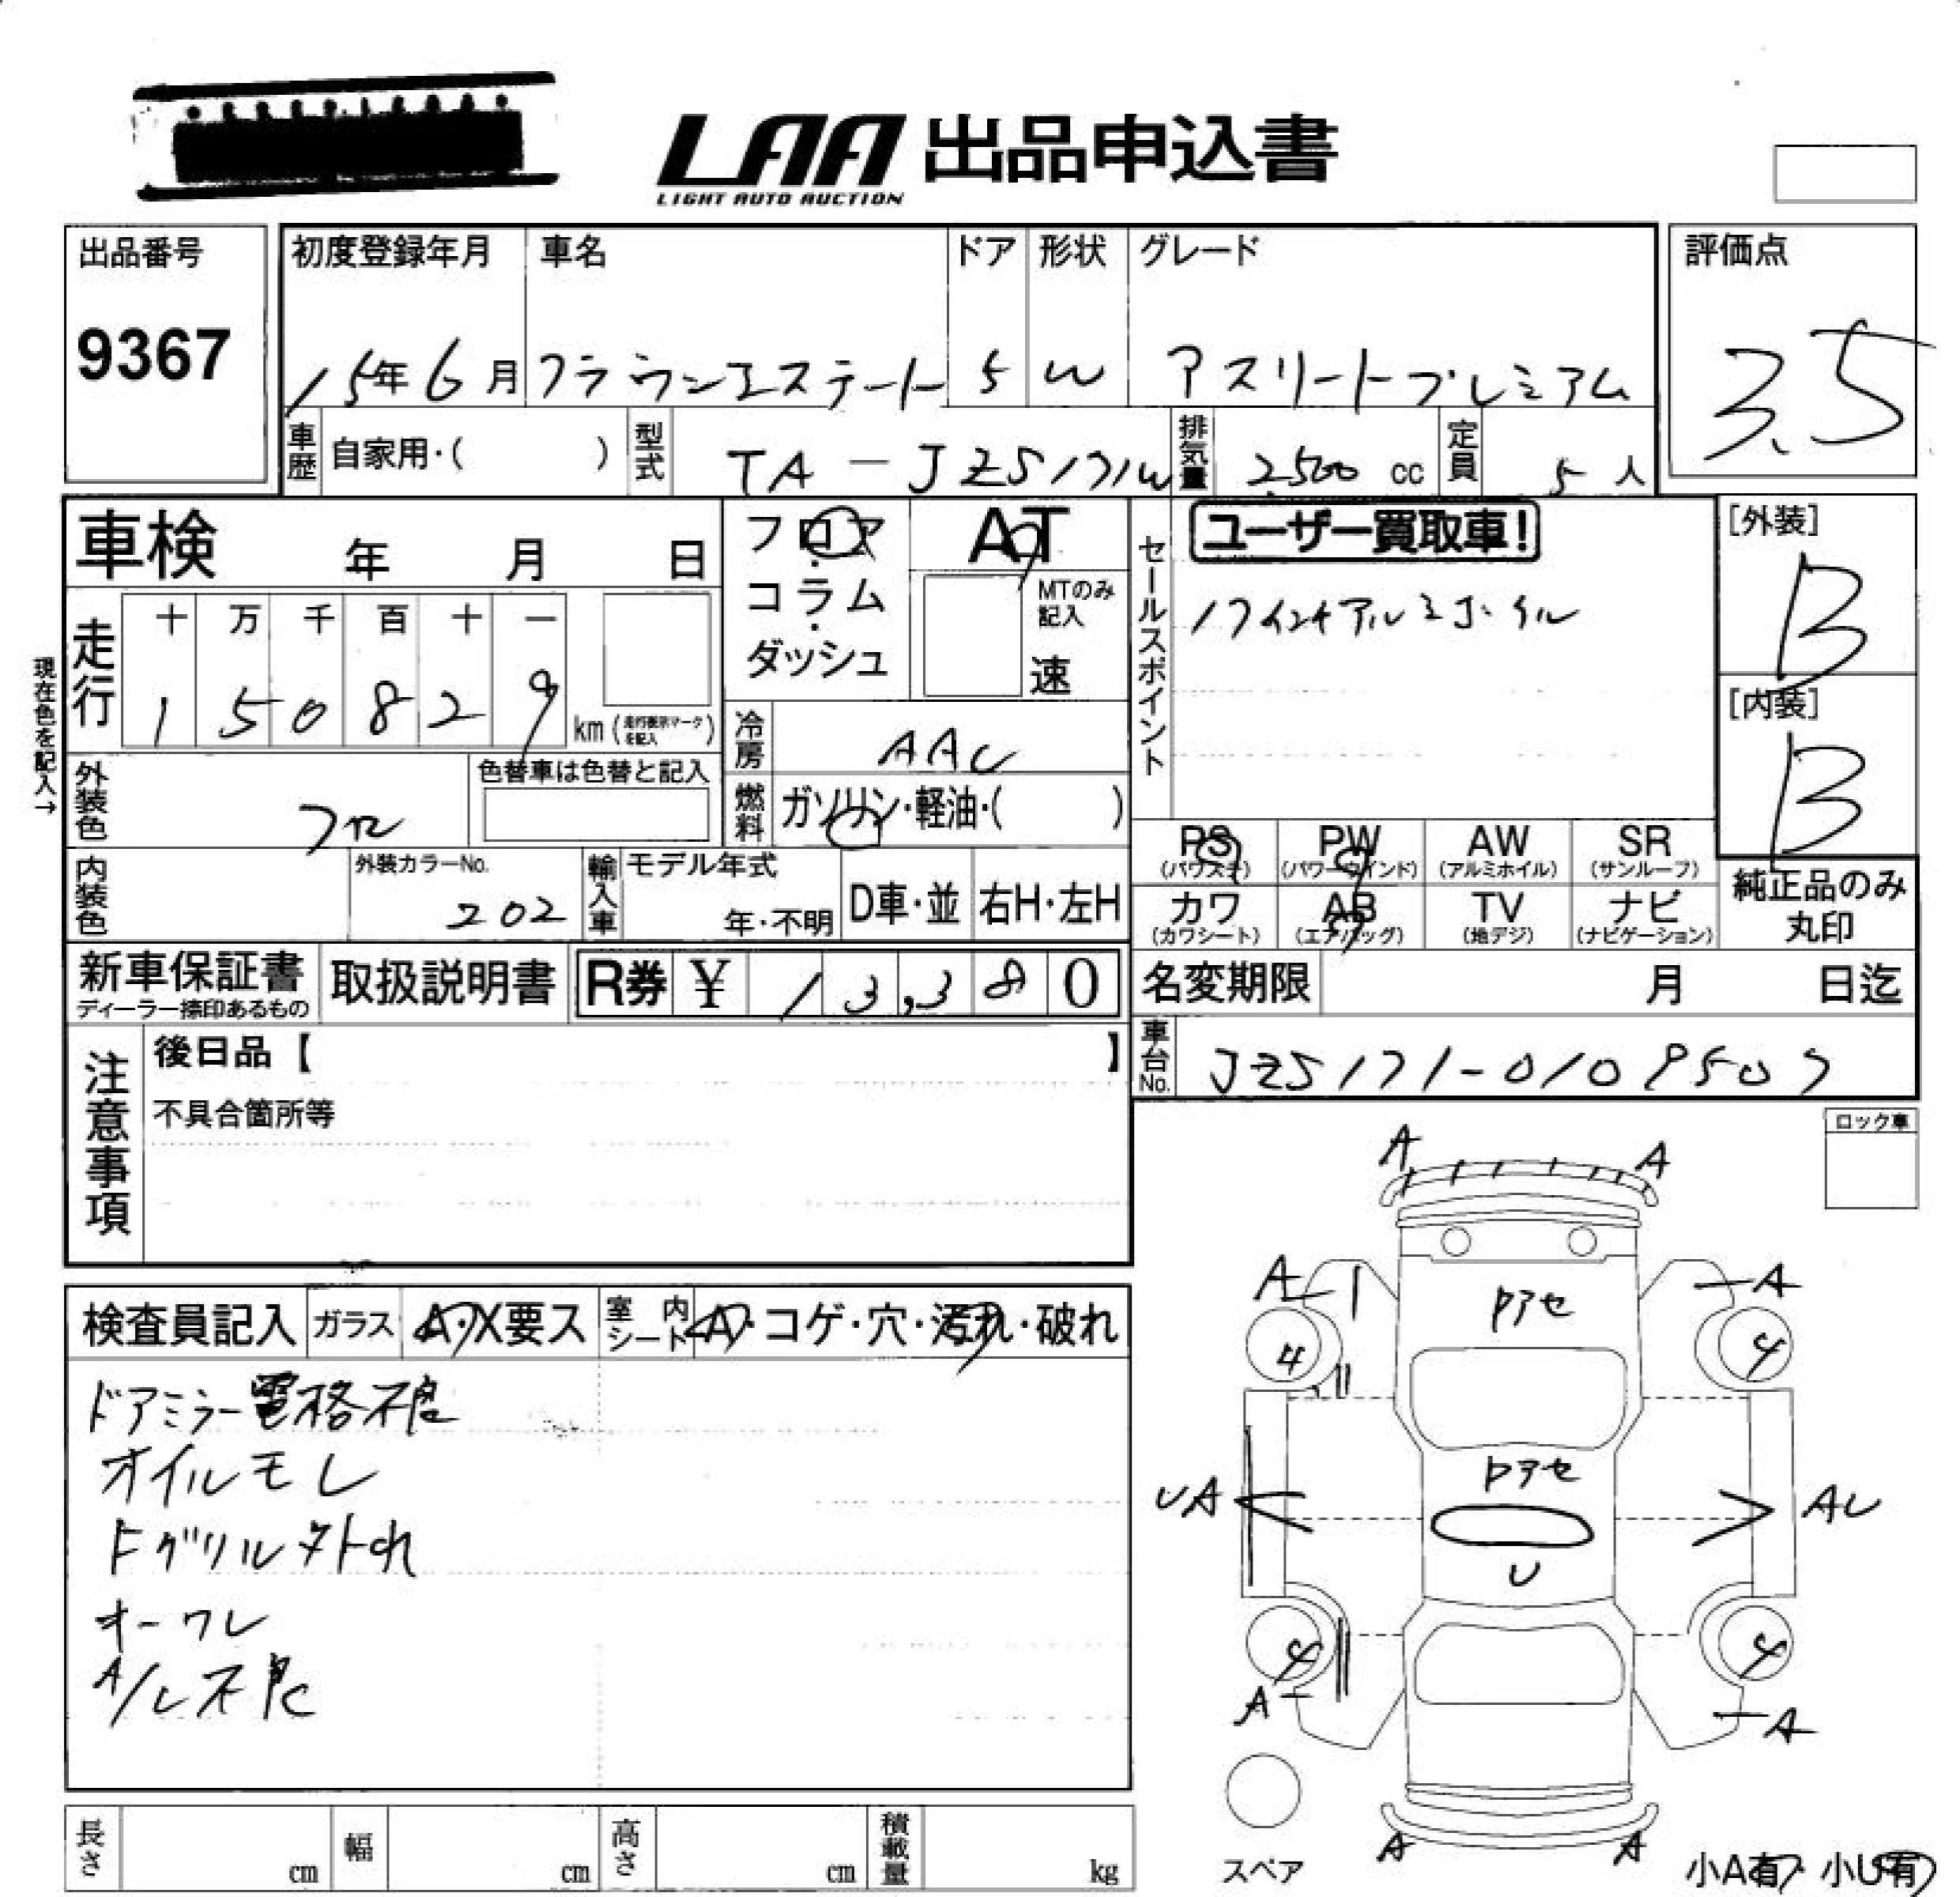 LAA 出品申込書
LIGHT AUTO AUCTION
出品番号 初度登録年月 車名 ドア 形状 グレード 評価点
9367 15年6月 クラウンエステート 5 W アスリートプレミアム 3.5
車歴 自家用・( ) 型式 TA-JZS171W 排気量 2500 cc 定員 5 人
車検 年 月 日 フロア・コラム・ダッシュ AT
MTのみ記入 速
セールスポイント ユーザー買取車!
17インチアルミホイル
[外装] B
[内装] B
現在色を記入→
走行 十 万 千 百 十 一
1 5 0 8 2 9 km (走行表示マークを記入)
冷房 AAC
外装色 色替車は色替と記入
燃料 ガソリン・軽油・( )
内装色 外装カラーNo. 202 輸入車 モデル年式 年・不明 D車・並 右H・左H
PS (パワステ) PW (パワーウインド) AW (アルミホイル) SR (サンルーフ)
カワ (カワシート) AB (エアバッグ) TV (地デジ) ナビ (ナビゲーション)
純正品のみ丸印
新車保証書 ディーラー捺印あるもの 取扱説明書 R券 ¥ 13,380
名変期限 月 日迄
車台No. JZS171-0109507
注意事項 後日品【 】
不具合箇所等
ロック車
検査員記入 ガラス A・X要ス 室内シート A・コゲ・穴・汚れ・破れ
ドアミラー電格不良
オイルモレ
Fグリル外れ
A/C不良
A A
A A
トアセ
4 4
トアセ
UA AU
U
4 4
A A
A A
スペア
小A有・小U有
長さ cm 幅 cm 高さ cm 積載量 kg